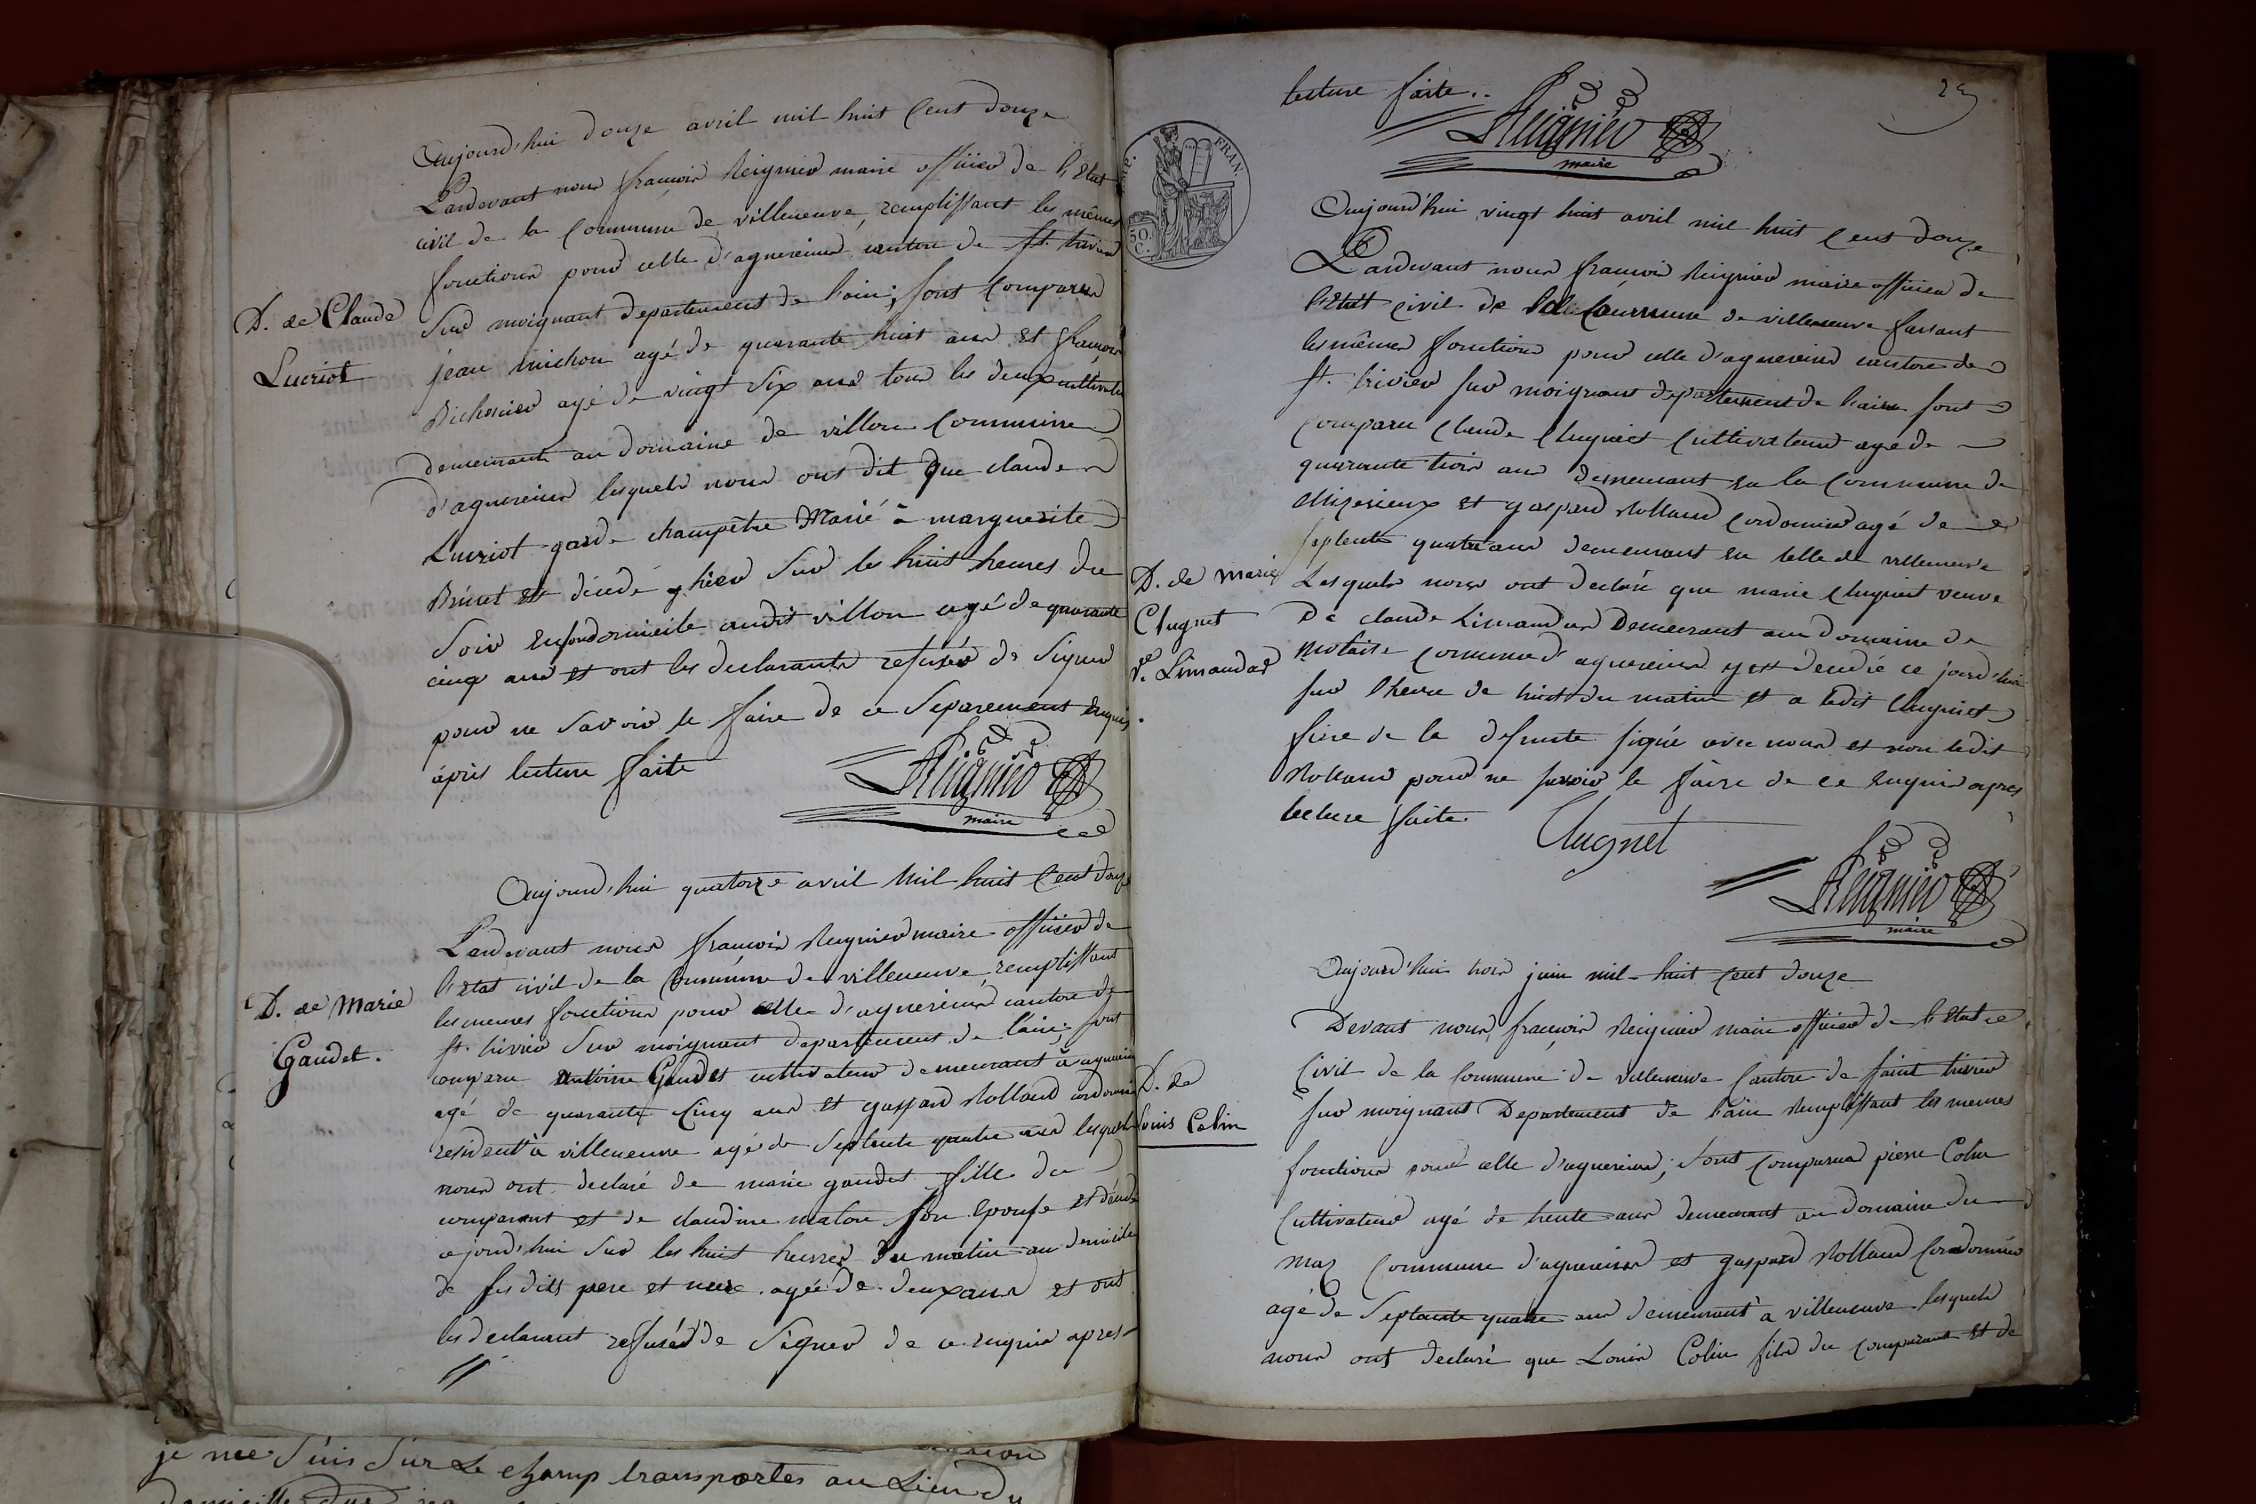 Aujourd'hui douze avril mil huit Cent douze
Pardevant nous françois Reignier maire officier de l'Etat
civil de la Commune de villeneuve, remplissant les mêmes
fonctions pour celle d'agnereins canton de st. trivier
D. de Claude
Lucriot
Sur moignant departement de l'ain; sont Comparus
jean michon agé de quarante huit ans et françois
agé de vingt Six ans tous les deux cultivateurs
demeurants au Domaine de villon Commune
d'agnereins lesquels nous ont dit Que claude
Lucriot garde champêtre Marié à marguerite
Brunet est décédé hier Sur les huit heures du
Soir en son domicile audit villon agé de quarante
cinq ans et ont les declarants refusés de Signer
pour ne Savoir le faire de ce Separement enquis
après lecture faite
Reignier
maire
Aujourd'hui quatorze avril Mil huit Cent douze
Pardevant nous françois Reignier maire officier de
l'Etat civil de la Commune de villeneuve remplissant
D. de Marie
Gaudet.
les memes fonctions pour celle d'agnereins canton de
st. trivier Sur moignant departement de l'ain; sont
comparu Antoine Gaudet cultivateur demeurant à agnereins
agé de quarante Cinq ans et gaspard Rolland cordonnier
résident à villeneuve agé de Septente quatre ans lesquels
nous ont declaré de marie gaudet fille du
comparant et de claudine maton son Epouse est décédé
ce jourd'hui Sur les huit heures du matin au domicile
de ses dits pere et mere agée de deux ans et ont
les declarant refusés de Signer de ce enquis apres
lecture faite..
Reignier
maire
25
EMP. FRAN.
50
C.
Aujourd'hui vingt huit avril mil huit Cent douze
Pardevant nous françois Reignier maire officier de
l'Etat civil de la Commune de villeneuve faisant
les mêmes fonctions pour celle d'agnereins canton de
st. trivier sur moignant departement de l'ain sont
comparu Claude Clugnet Cultivateur agé de
quarante trois ans demeurant en la Commune de
Mizerieux et gaspard Rolland Cordonnier agé de
septente quatre ans demeurant en celle de villeneuve
D. de Marie
Clugnet
ve. Limandas
Lesquels nous ont declaré que marie Clugnet veuve
De claude Limandas Demeurant au Domaine de
commune d'agnereins y est decedée ce jourd'hui
sur l'heure de huit du matin et a ledit Clugnet
frere de la defunte signé avec nous et non ledit
Rolland pour ne savoir le faire de ce enquis apres
lecture faite.
Clugnet
Reignier
maire
Aujourd'hui trois juin mil huit Cent douze
Devant nous, françois Reignier maire officier de l'Etat
D. de
Louis Colin
Civil de la Commune de villeneuve Canton de saint trivier
sur moignant Departement de l'ain Remplissant les memes
fonctions pour celle d'agnereins; Sont Comparus pierre Colin
Cultivateur agé de trente ans demeurant au Domaine du
maz Commune d'agnereins et gaspard Rolland Cordonnier
agé de Septante quatre ans demeurant à villeneuve lesquels
nous ont declaré que Louis Colin fils du Comparant et de
je me Suis Sur Le champ transportés au Lieu du